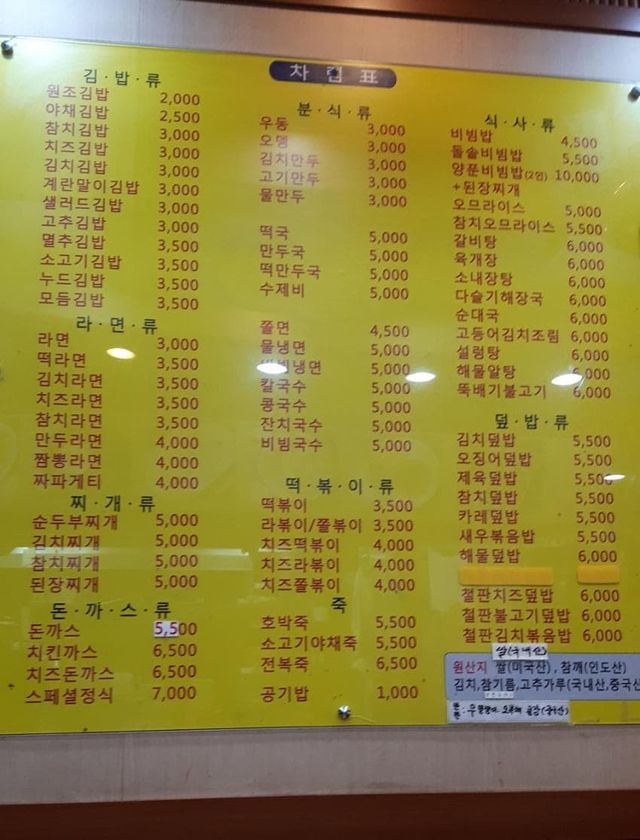 차림표
김·밥·류
원조김밥 2,000
야채김밥 2,500
참치김밥 3,000
치즈김밥 3,000
김치김밥 3,000
계란말이김밥 3,000
샐러드김밥 3,000
고추김밥 3,000
멸추김밥 3,500
소고기김밥 3,500
누드김밥 3,500
모듬김밥 3,500
라·면·류
라면 3,000
떡라면 3,500
김치라면 3,500
치즈라면 3,500
참치라면 3,500
만두라면 4,000
짬뽕라면 4,000
짜파게티 4,000
찌·개·류
순두부찌개 5,000
김치찌개 5,000
참치찌개 5,000
된장찌개 5,000
돈·까·스·류
돈까스 5,500
치킨까스 6,500
치즈돈까스 6,500
스페셜정식 7,000
분·식·류
우동 3,000
오뎅 3,000
김치만두 3,000
고기만두 3,000
물만두 3,000
떡국 5,000
만두국 5,000
떡만두국 5,000
수제비 5,000
쫄면 4,500
물냉면 5,000
비빔냉면 5,000
칼국수 5,000
콩국수 5,000
잔치국수 5,000
비빔국수 5,000
떡·볶·이·류
떡볶이 3,500
라볶이/쫄볶이 3,500
치즈떡볶이 4,000
치즈라볶이 4,000
치즈쫄볶이 4,000
죽
호박죽 5,500
소고기야채죽 5,500
전복죽 6,500
공기밥 1,000
식·사·류
비빔밥 4,500
돌솥비빔밥 5,500
양푼비빔밥(2인) 10,000
+된장찌개
오므라이스 5,000
참치오므라이스 5,500
갈비탕 6,000
육개장 6,000
소내장탕 6,000
다슬기해장국 6,000
순대국 6,000
고등어김치조림 6,000
설렁탕 6,000
해물알탕 6,000
뚝배기불고기 6,000
덮·밥·류
김치덮밥 5,500
오징어덮밥 5,500
제육덮밥 5,500
참치덮밥 5,500
카레덮밥 5,500
새우볶음밥 5,500
해물덮밥 6,000
철판치즈덮밥 6,000
철판불고기덮밥 6,000
철판김치볶음밥 6,000
쌀(국내산)
원산지 쌀(미국산), 참깨(인도산)
김치,참기름,고추가루(국내산,중국산